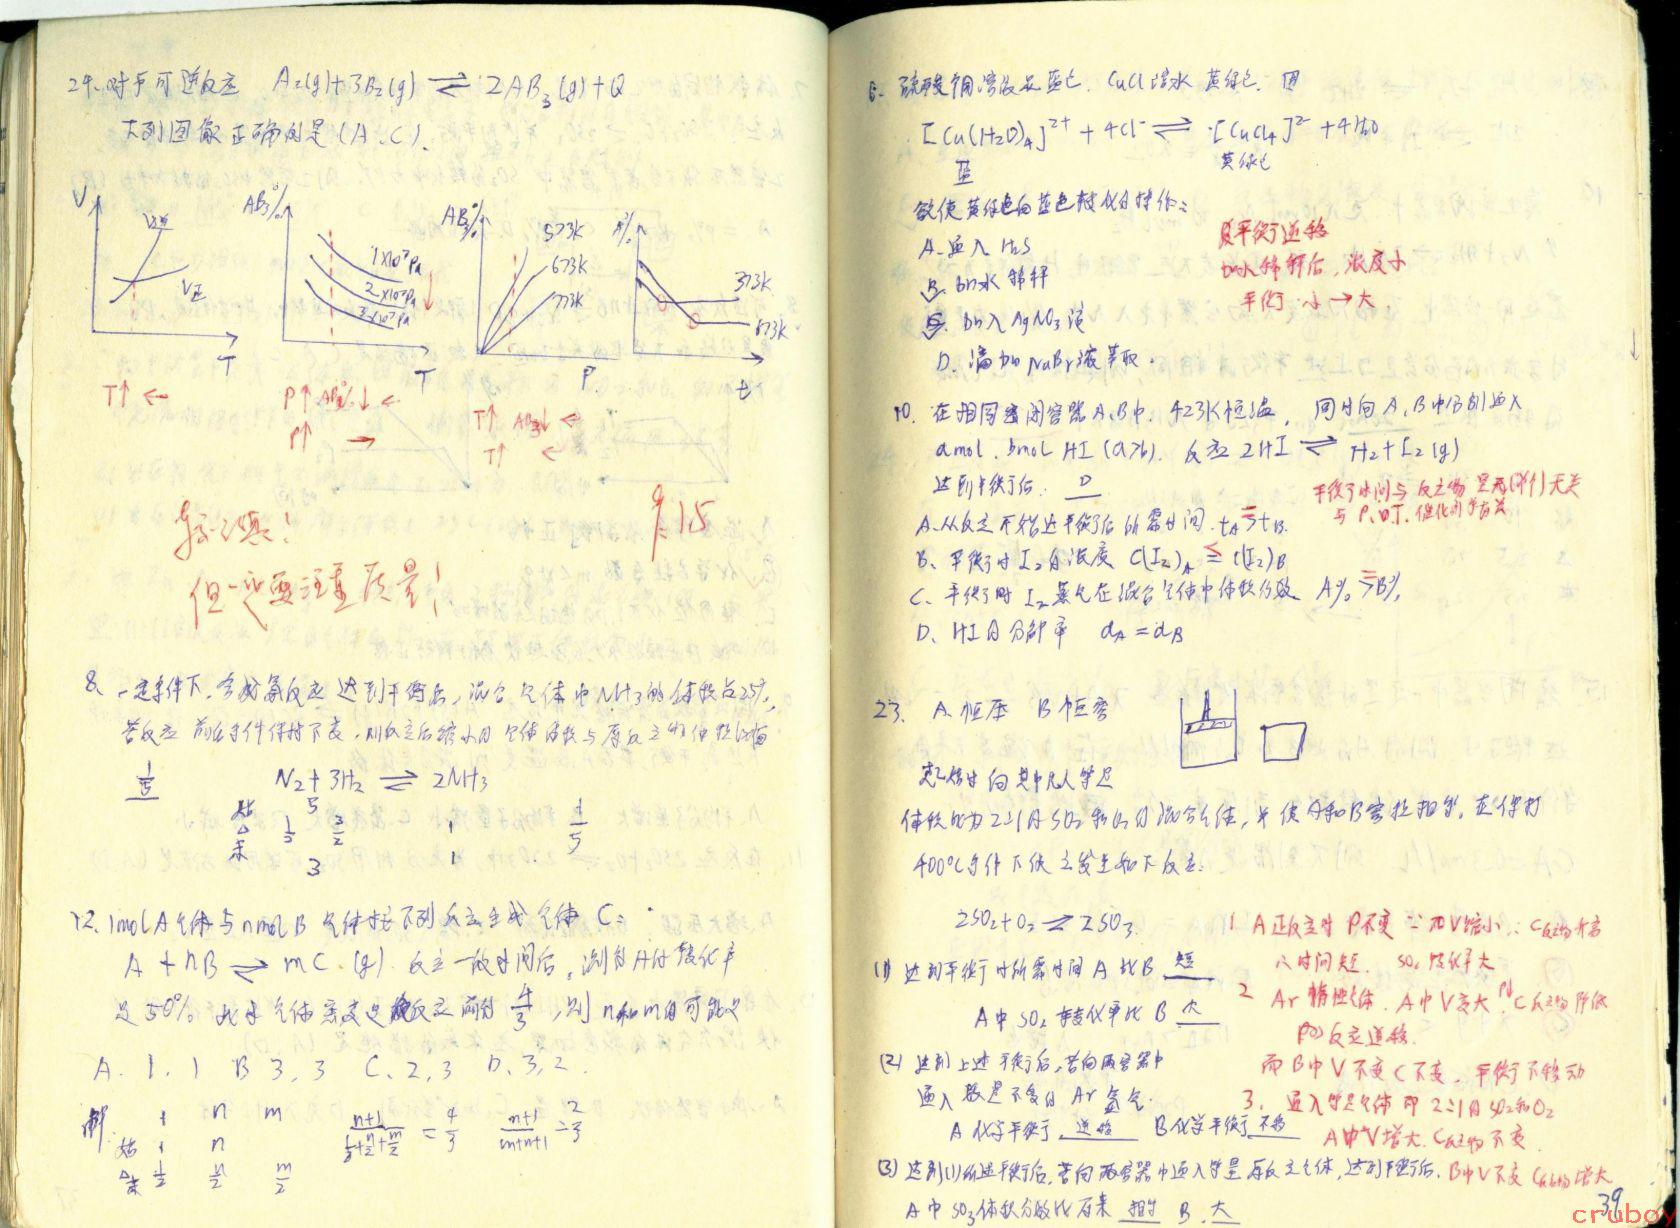 24. 对于可逆反应 A₂(g)+3B₂(g) ⇌ 2AB₃(g)+Q
下列图像正确的是(A、C).
V V逆 V正 T
AB₃% 1×10⁷Pa 2×10⁷Pa 3×10⁷Pa T
AB₃% 573K 673K 773K P
A₂% 373K 673K t
T↑ ←
P↑ AB₃%↓ ←
P↑ →
T↑ AB₃↓ ←
T↑ ←
9/15
但一定要注重质量!
8、一定条件下,合成氨反应达到平衡后,混合气体中NH₃的体积占25%,
若反应前后条件保持不变,则反应后缩小的气体体积与原反应物体积比值
1/5 N₂+3H₂ ⇌ 2NH₃
始 5 4/5
Δ 1/2 3/2 1
末 3 1
12. 1molA气体与nmolB气体按下列反应生成气体C:
A + nB ⇌ mC (g). 反应一段时间后,测得A的转化率
是50% 此时气体密度是反应前的 4/3,则n和m的可能是
A. 1. 1 B 3, 3 C、2, 3 D、3, 2.
解 1 n m
始 1 n
Δ 1/2 n/2 m/2
末
n+1 / (1/2+n/2+m/2) = 4/3 n+1 / (m+n+1) = 2/3
6. 硫酸铜溶液是蓝色. CuCl₂溶水 黄绿色. 因
[Cu(H₂O)₄]²⁺ + 4Cl⁻ ⇌ [CuCl₄]²⁻ +4H₂O
蓝 黄绿色
欲使黄绿色向蓝色转化的操作:
A. 通入H₂S
B. 加水稀释
C. 加入AgNO₃液
D. 滴加NaBr液萃取.
平衡逆移
加水稀释后,浓度小
平衡 小→大
10. 在相同密闭容器A、B中. 423K恒温, 同时向A、B中分别通入
amol. bmol HI (a>b). 反应 2HI ⇌ H₂+I₂(g)
达到平衡后. D
平衡时间与反应物 无关
与P、T、催化剂有关
A. 从反应开始达平衡后所需时间. tA > tB. =
B、平衡时I₂的浓度 C(I₂)A = C(I₂)B
C、平衡时I₂蒸气在混合气体中体积分数 A% > B%. =
D、HI的分解率 αA = αB
23. A 恒压 B 恒容
体积比为2:1的SO₂和O₂的混合气体,并使A和B容积相等,在保持
400℃条件下使之发生如下反应:
2SO₂+O₂ ⇌ 2SO₃.
(1) 达到平衡时所需时间A比B 短
A中SO₂转化率比B 大
(2) 达到上述平衡后,若向两容器中
通入数量不多的Ar氩气.
A化学平衡 逆移 B化学平衡 不移
(3) 达到(1)所述平衡后,若向两容器中通入等量原反应气体,达到平衡后.
A中SO₃体积分数比原来 相等 B. 大
1 A正反应时 P不变 ∵ 而V缩小 ∴ C反应物升高
∴时间短. SO₂转化率大
2 Ar 惰性气体. A中V变大 则C反应物降低
向反应逆移.
而B中V不变 C不变. 平衡不移动
3. 通入等量气体 即2:1的SO₂和O₂
A中V增大. C反应物不变
B中V不变 C反应物增大
39
cruboy